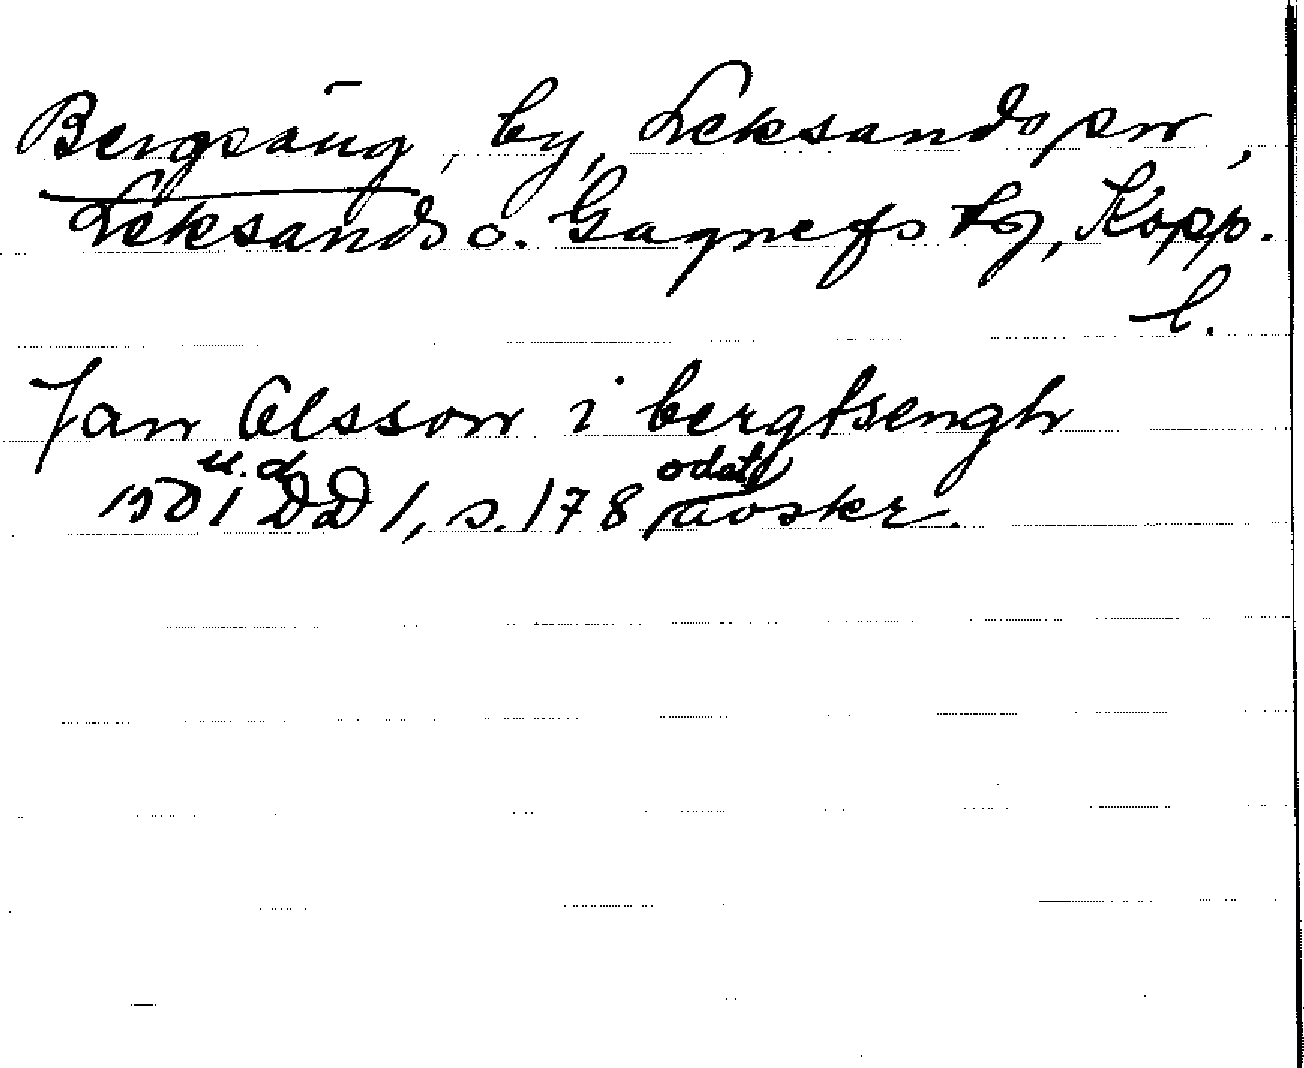 Bergsäng, by, Leksands sn,
Leksands o. Gagnefs tg, Kopp.
l.
Jan Olsson i bergtsengh
1501 u.d. DD 1, s. 178 odat. avskr.